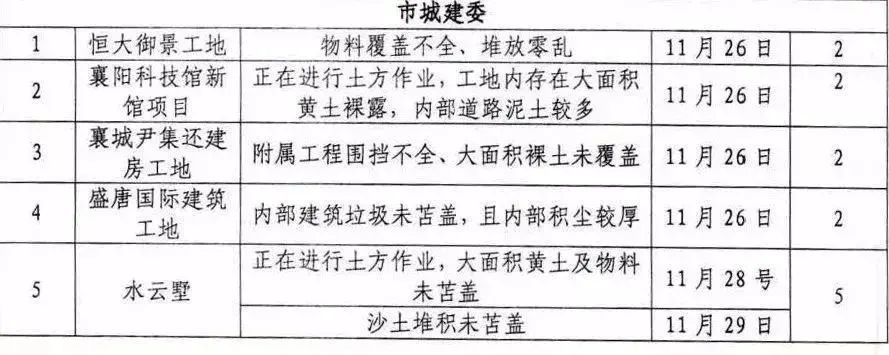 市城建委
1 恒大御景工地 物料覆盖不全、堆放零乱 11月26日 2
2 襄阳科技馆新馆项目 正在进行土方作业，工地内存在大面积黄土裸露，内部道路泥土较多 11月26日 2
3 襄城尹集还建房工地 附属工程围挡不全、大面积裸土未覆盖 11月26日 2
4 盛唐国际建筑工地 内部建筑垃圾未苫盖，且内部积尘较厚 11月26日 2
5 水云墅 正在进行土方作业，大面积黄土及物料未苫盖 11月28号 5
沙土堆积未苫盖 11月29日